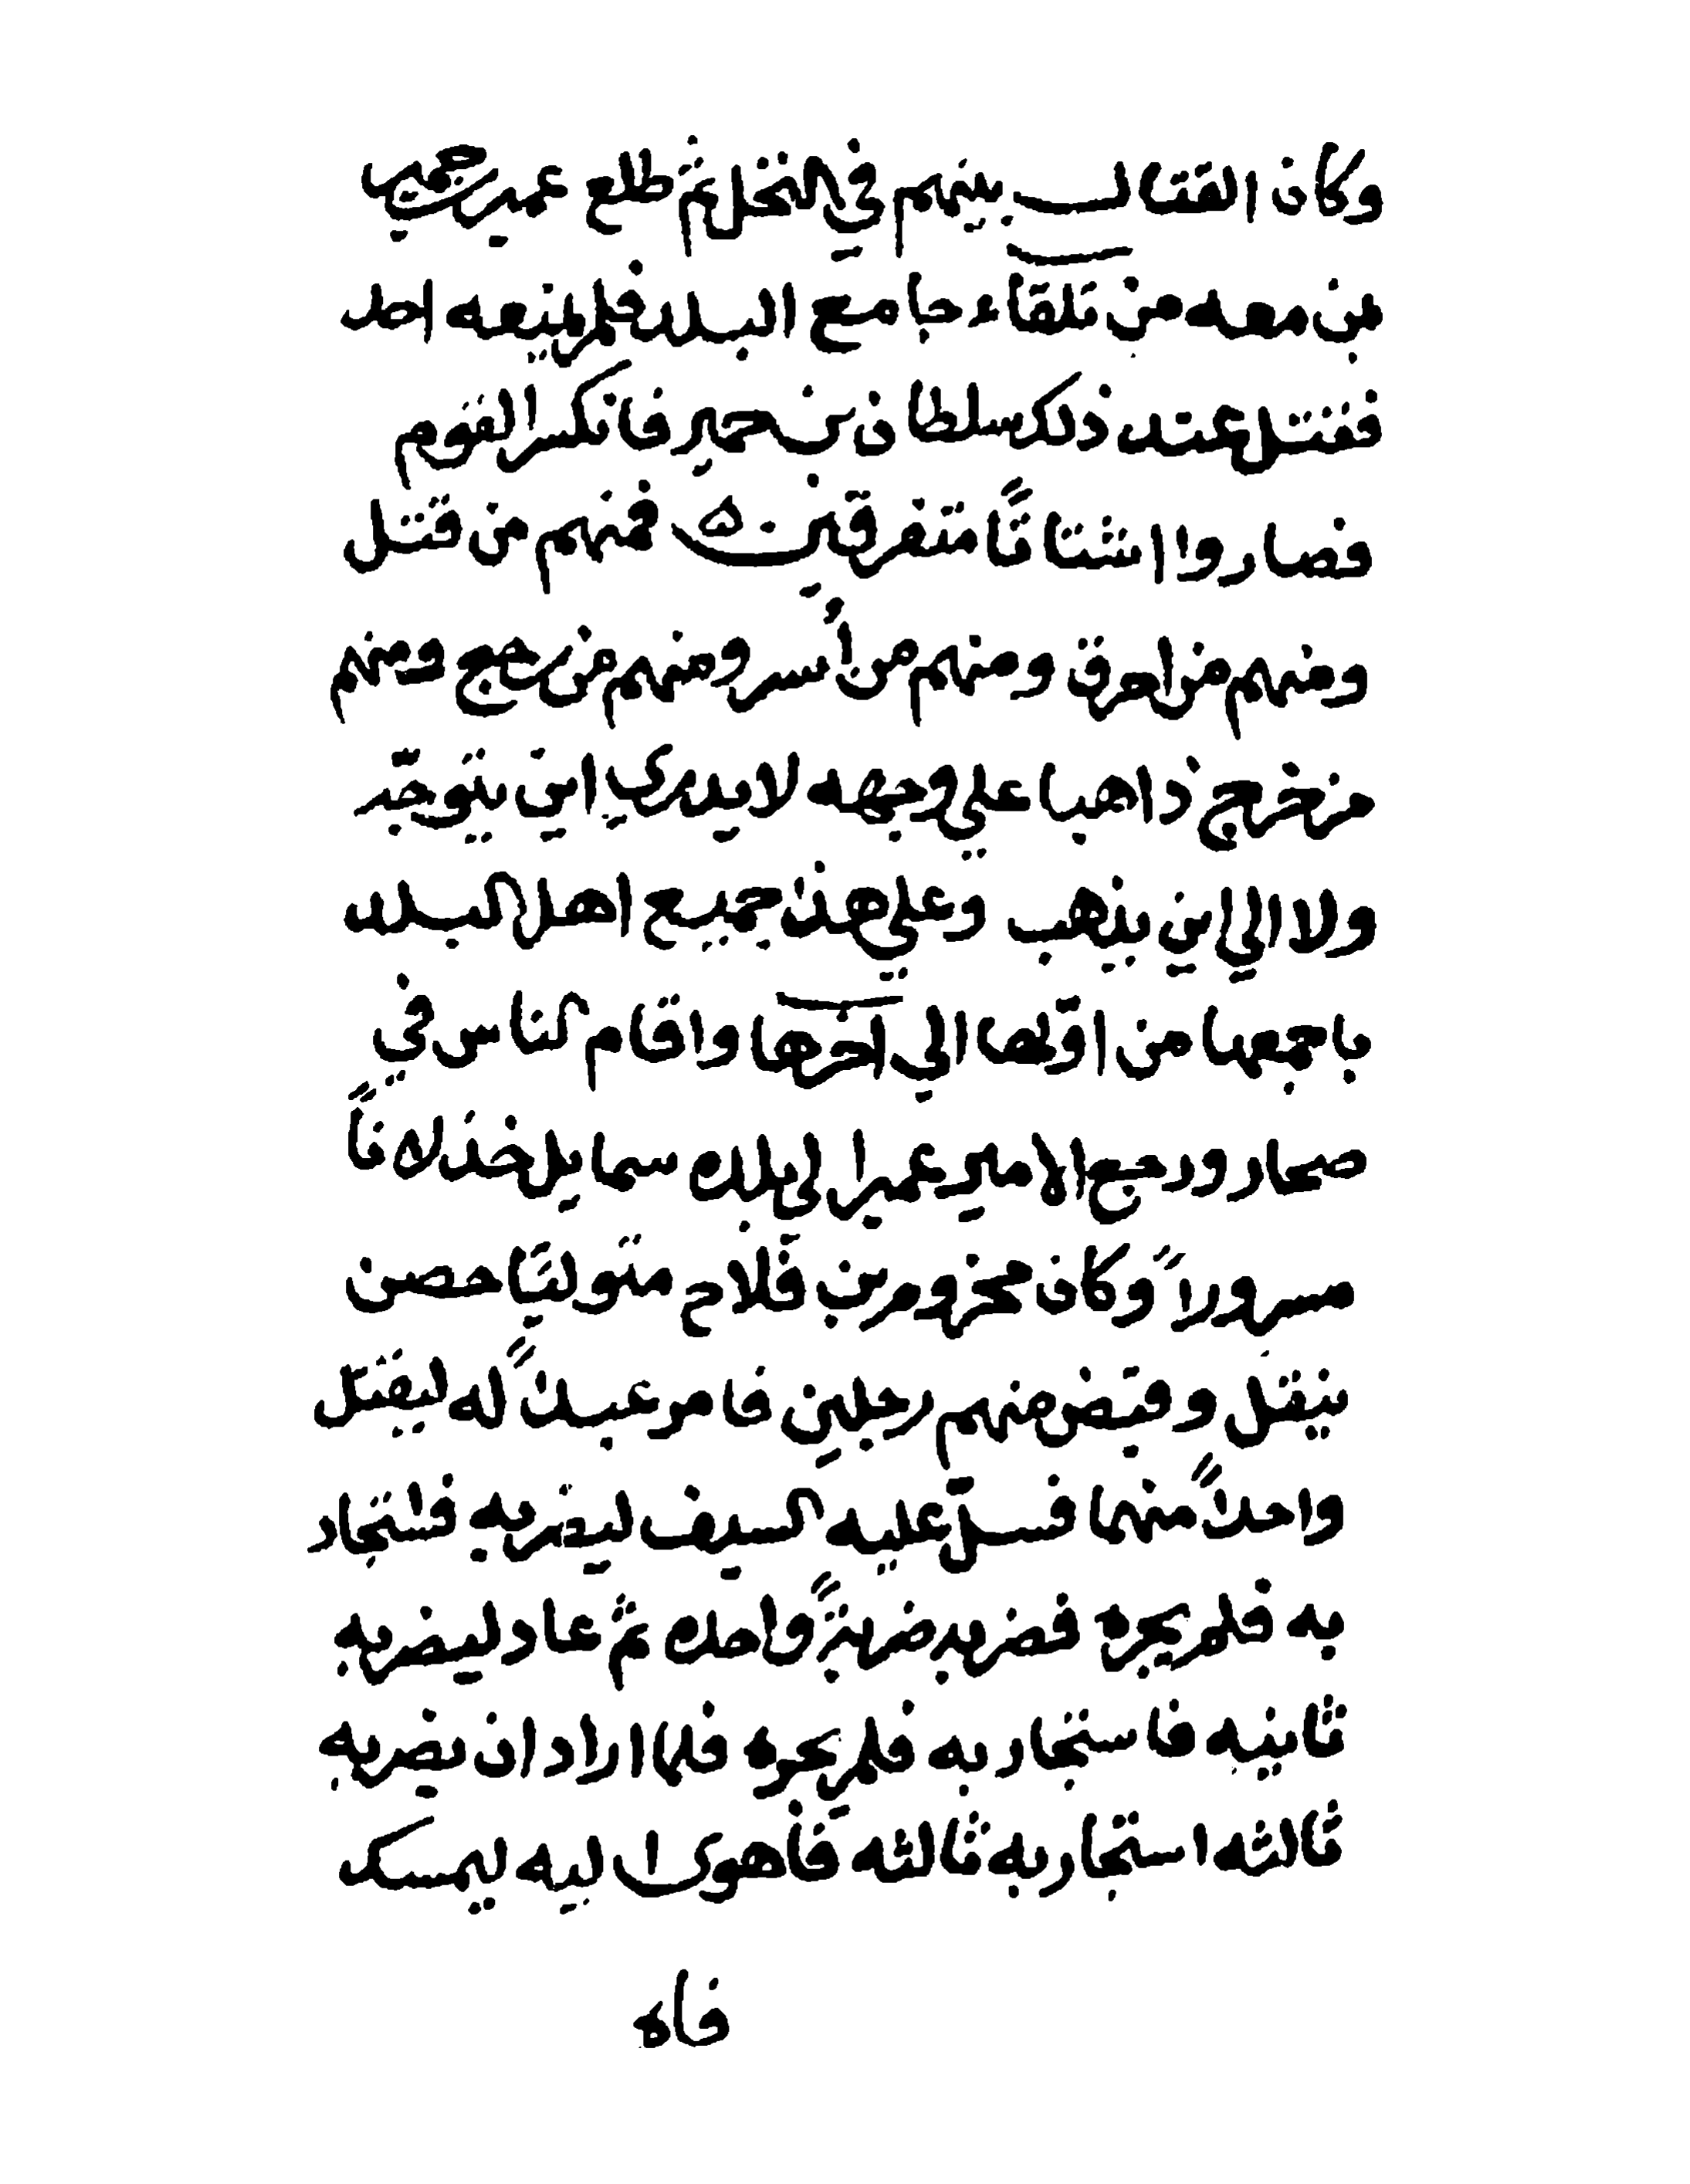 وكان القتال بينهم في النخل ثم طلع عمير بن حمير
بمن معه من تلقاء جامع البلد فلم يمنعه احد
فقتل عند ذلك سلطان بن حمير فانكسر القوم
فصاروا اشتاتاً متفرقين فمنهم من قتل
ومنهم من احرق ومنهم من أسر ومنهم من رجع ومنهم
من خرج ذاهبا علي وجهه لا يدري اين يتوجّه
ولا الي اين يذهب وعلي هذا جميع اهل البلد
باجمعها من اوّلها الي آخرها واقام الناس في
صحار ورجع الامير عمير الي بلده سمايل خذلاناً
مسروراً وكان مخزوم بن فلاح متوليًا حصن
ينقل وقبض منهم رجلين فامر عبداً له ليقتل
واحداً منهما فسلّ عليه السيف ليضربه فاستجار
به فلم يجره فضربه ضربةً واحده ثم عاد ليضربه
ثانيه فاستجار به فلم يجره فلما اراد ان يضربه
ثالثه استجار به ثالثه فأهوى اليه ليمسك
فاه